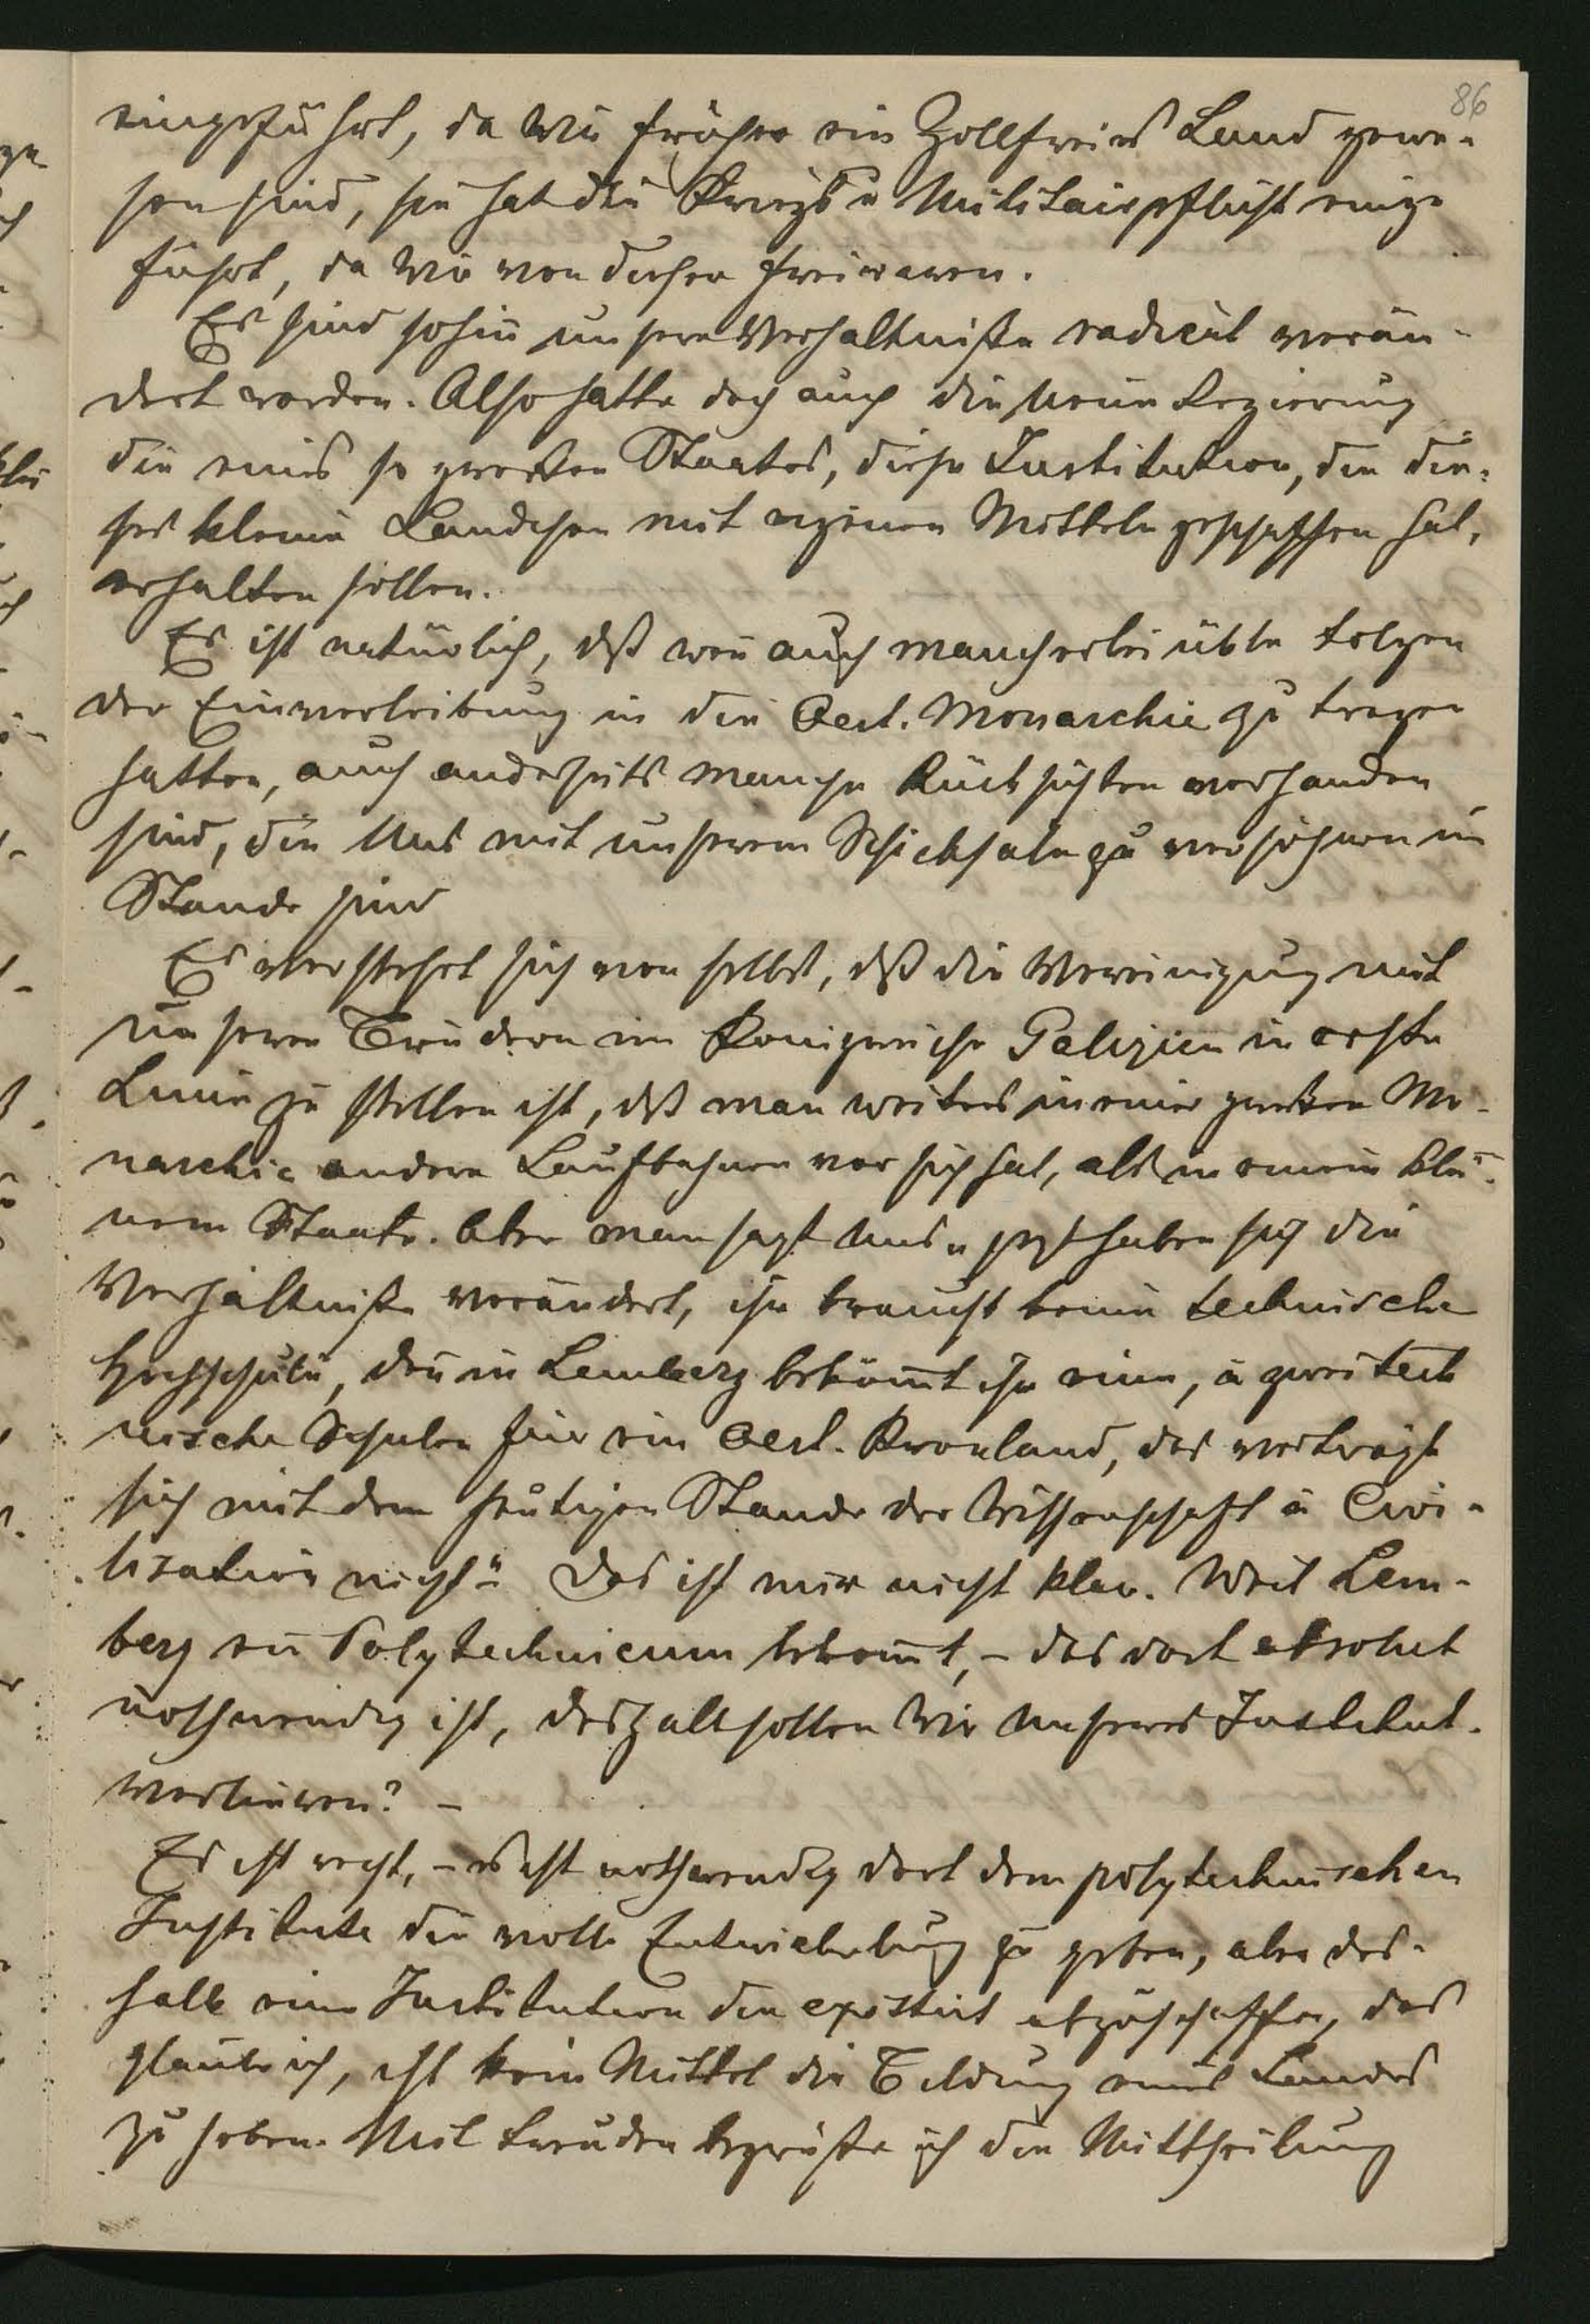 86
eingeführt, da wir früher ein Zollfreies Land gewe-
sen sind, sie hat die Kriegs u Militairpflicht einge
führt, da wir von dieser frei waren.
Es sind sohin unsere Verhältniße radical verän-
dert worden. Also hätte doch auch die neue Regierung
die eines so großen Staates, diese Institution, die die-
ses kleine Ländchen mit eigenen Mitteln geschaffen hat,
erhalten sollen.
Es ist natürlich, dß wen auch mancherlei üble Folgen
der Einverleibung in die Oest. Monarchie zu tragen
hatten, auch anderseits manche Rücksichten vorhanden
sind, die Uns mit unserem Schicksale zu versöhnen im
Stande sind
Es versteht sich von selbst, dß die Vereinigung mit
unseren Brüdern im Königreiche Galizien in erste
Linie zu stellen ist, dß man weiters in einer großen Mo-
narchie andere Laufbahnen vor sich hat, als in einem klei-
nem Staate. Aber man sagt Uns „jezt haben sich die
Verhältniße verändert, ihr braucht keine technische
Hochschule, den in Lemberg bekömt ihr eine, u zwei tech
nische Schulen für ein Oest. Kronland, das verträgt
sich mit dem heutigen Stande der Wissenschaft u Civi-
lization nicht“ Das ist mir nicht klar. Weil Lem-
berg ein Polytechnicum bekomt, – das dort absolut
nothwendig ist, deshalb sollen wir unseres Institut
verlieren? –
Es ist recht, – es ist nothwendig dort dem polytechnischen
Institute die volle Entwickelung zu geben, aber des-
halb eine Institution die existirt abzuschaffen, das
glaube ich, ist kein Mittel die Bildung eines Landes
zu heben. Mit Freuden begrüßte ich die Mittheilung